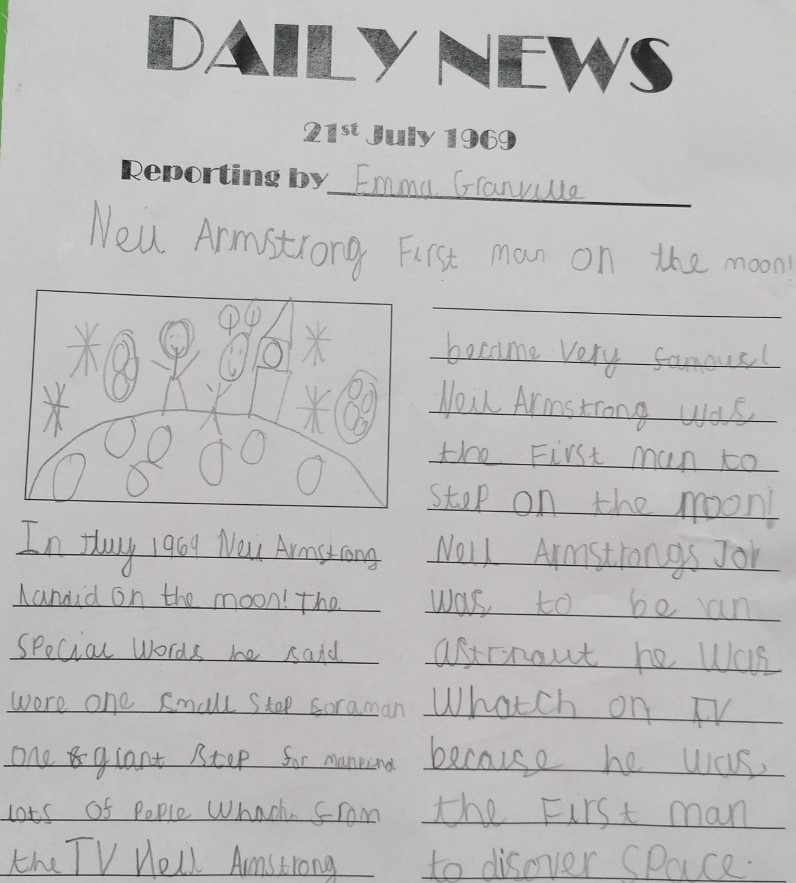 DAILY NEWS
21st July 1969
Reporting by Emma Granville
Neil Armstrong First man on the moon!
In 1969 Neil Armstrong
Landid on the moon! The
special words he said
were one small step for a man
one giant step for mankind
lots of Pople Whach from
the TV Neil Armstrong
became very famous!
Neil Armstrong was
the First man to
step on the moon!
Neil Armstrongs Job
was to be an
astrnaut he was
Whatch on TV
because he was
the First man
to discver space.